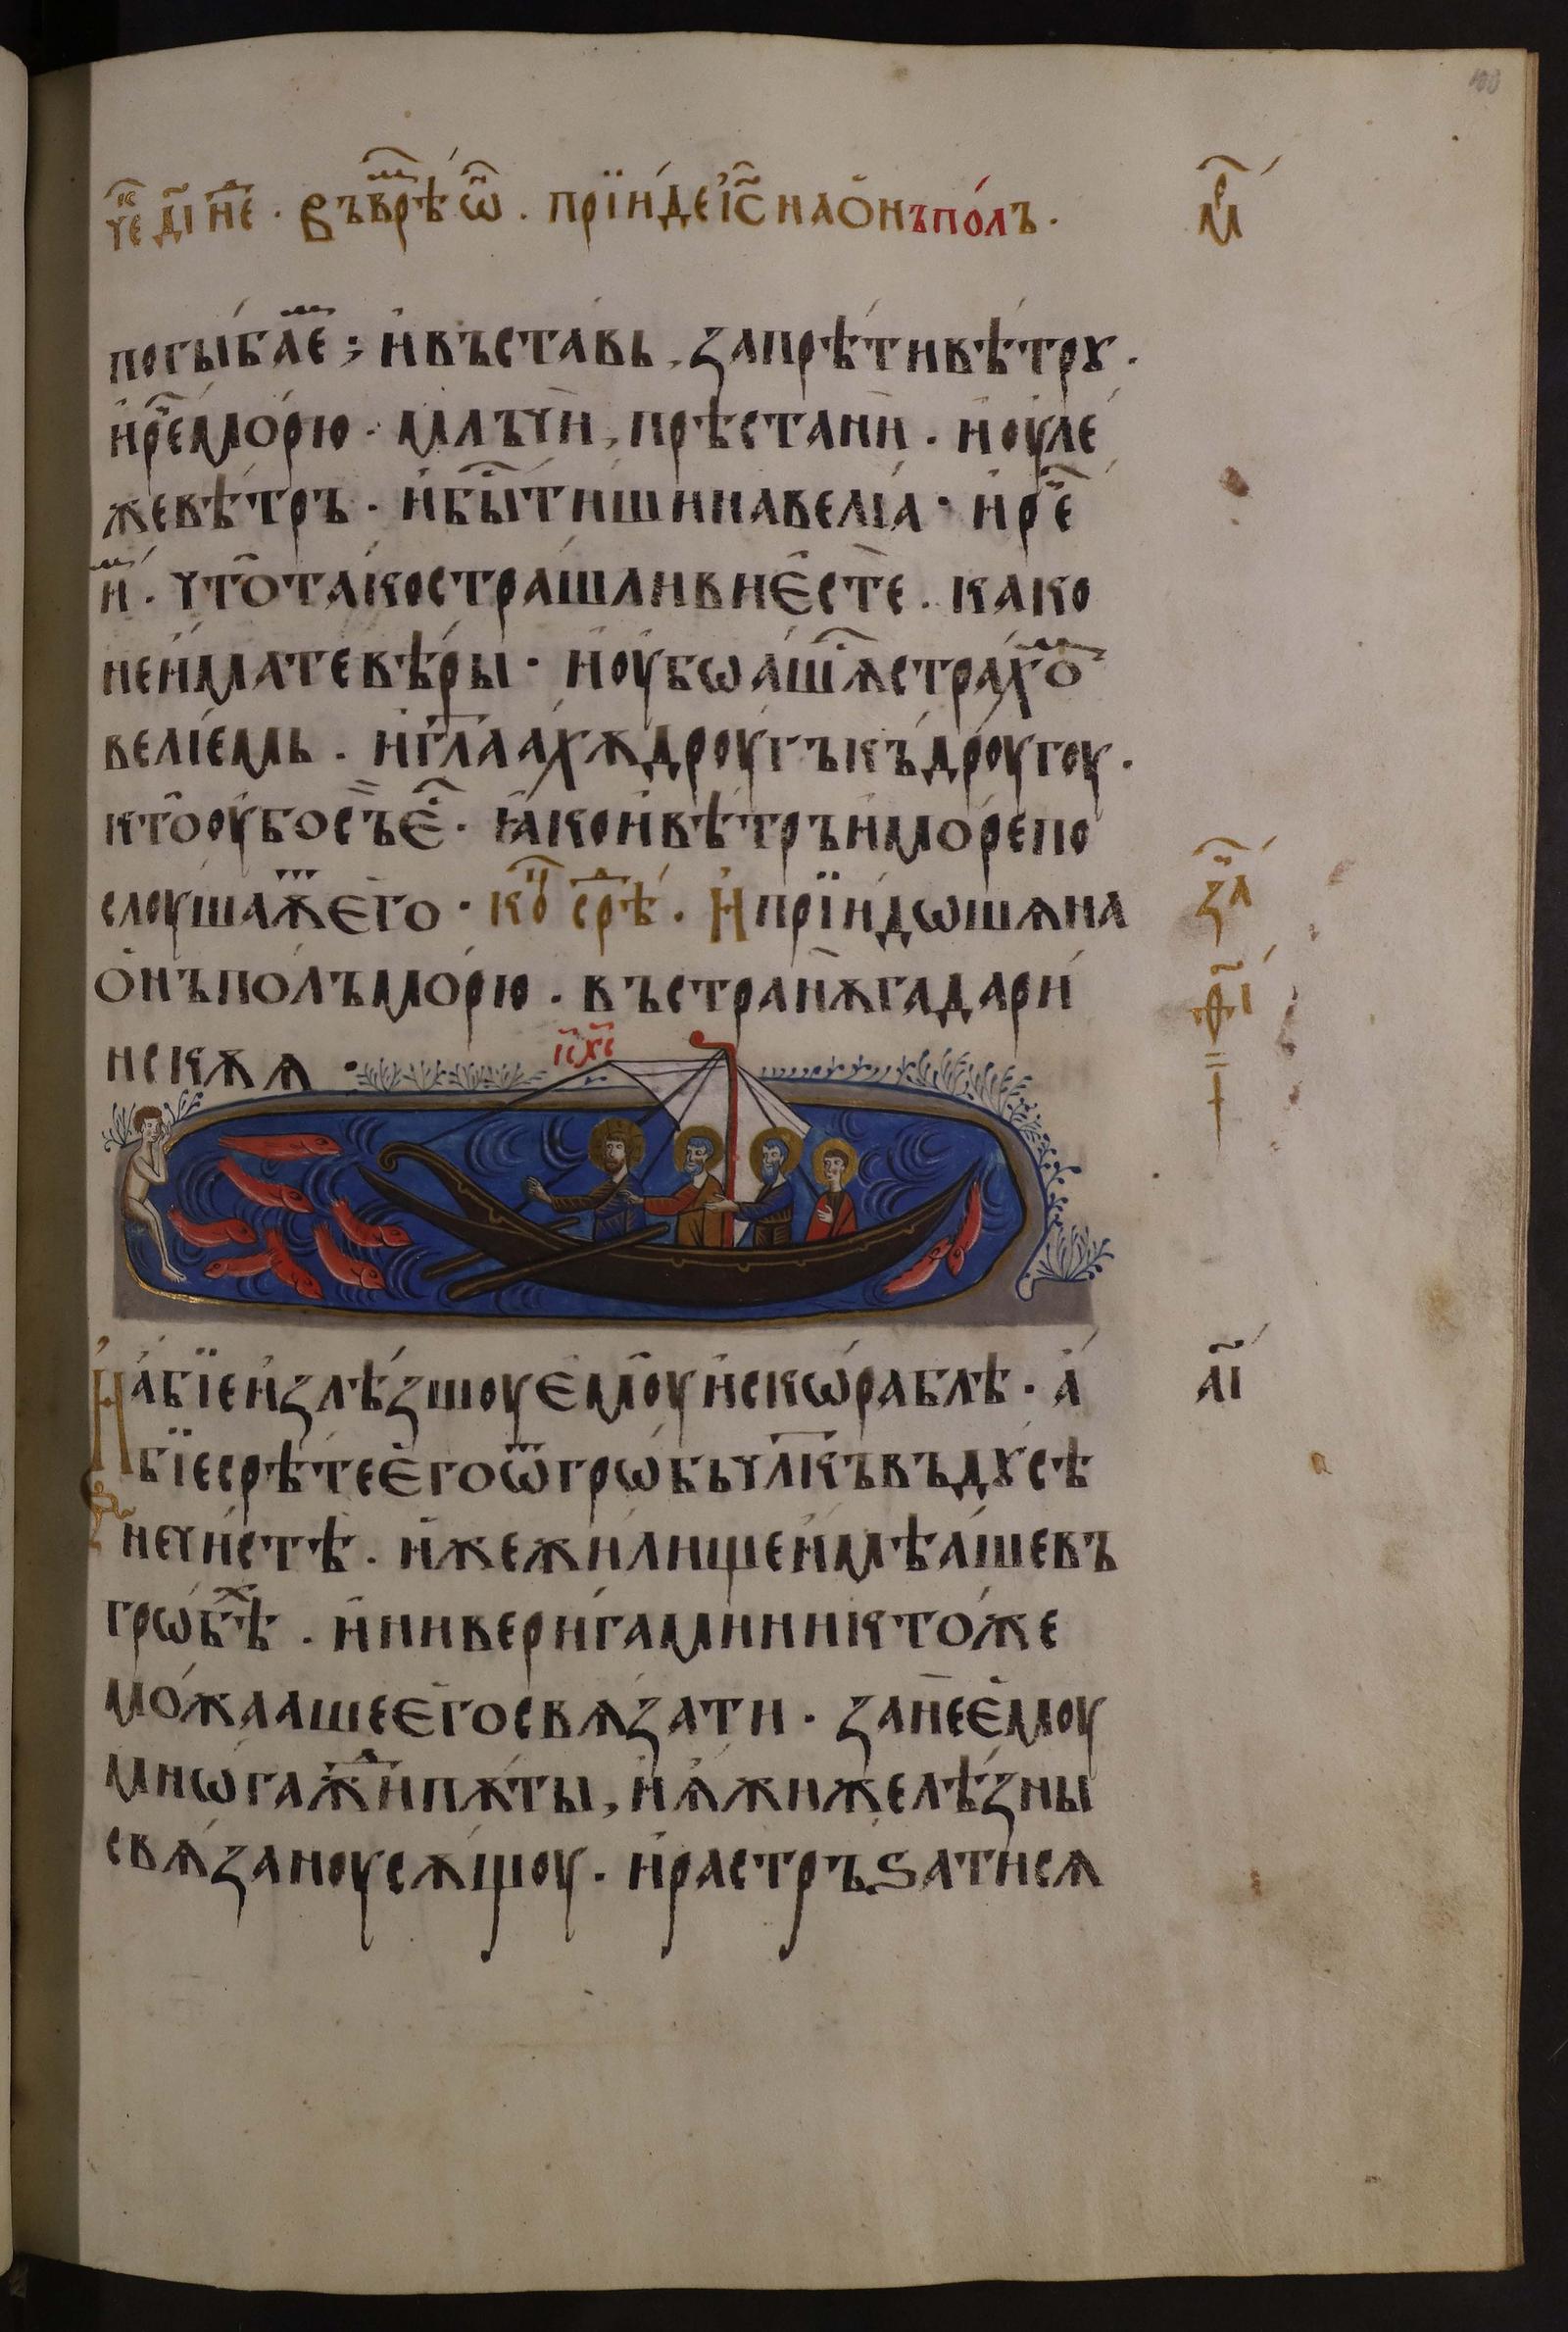 че҇ д҃і нⷣе҇ · Въ врⷨѣ ѡ҅҃ · прїи́де і҆с҃ на ѻ҆нъ по́лъ · м҃р
погы́баⷨе ; и҆ въставь , запрѣ́ти вѣ́трꙋ ·
и҆ рⷱ҇е мо́рю · млъчи̏ , прѣстани̏ · и҆ оу҆ле́
же вѣ́тръ · и҆ бы҇ тишина велїа · и҆ рⷱ҇е
иⷨ · что̑ та́ко стра́шливи є҆сте̏ · како
не и҆мате вѣ́ры · и҆ оу҆бѡа́шѧ сѧ страⷯѡⷨ
велїемь · и҆ гл҃аахѫ дроу́гъ къ дро́угоу ·
кто̑ оу҆бо съ̏ є҆҇ · ꙗ҆ко и҆ вѣ́тръ и҆ мо́ре по
слоуша́ѫⷮ є҆го · коⷰ҇ срⷣѣ · И҆ прїи́дѡшѧ на з҃а
ѻ҆нъ по́лъ мо́рю · въ странѫ̏ гадари́ ф҃і
нскѫѧ ·
і҆с҃ х҃с
И҆ а́бїе и҆злѣ́зшоу є҆моу̑ и҆с кѡ́раблѣ · а҆́ а҃і
бїе срѣ́те є҆го ѿ грѡ́бь чл҃къ въ дꙋсѣ
нечи́стѣ · и҆же жи́лище и҆мѣа́ше въ
грѡ́бⷯѣ · и҆ ни вери́гами никто́же
мо́жааше є҆го свѧзати · зане̏ є҆моу
мнѡ́гажⷣи пѫ́ты , и҆ ѫ҆жи желѣ́зны
свѧ́заноу сѫ́щоу · и҆ растръѕати сѧ